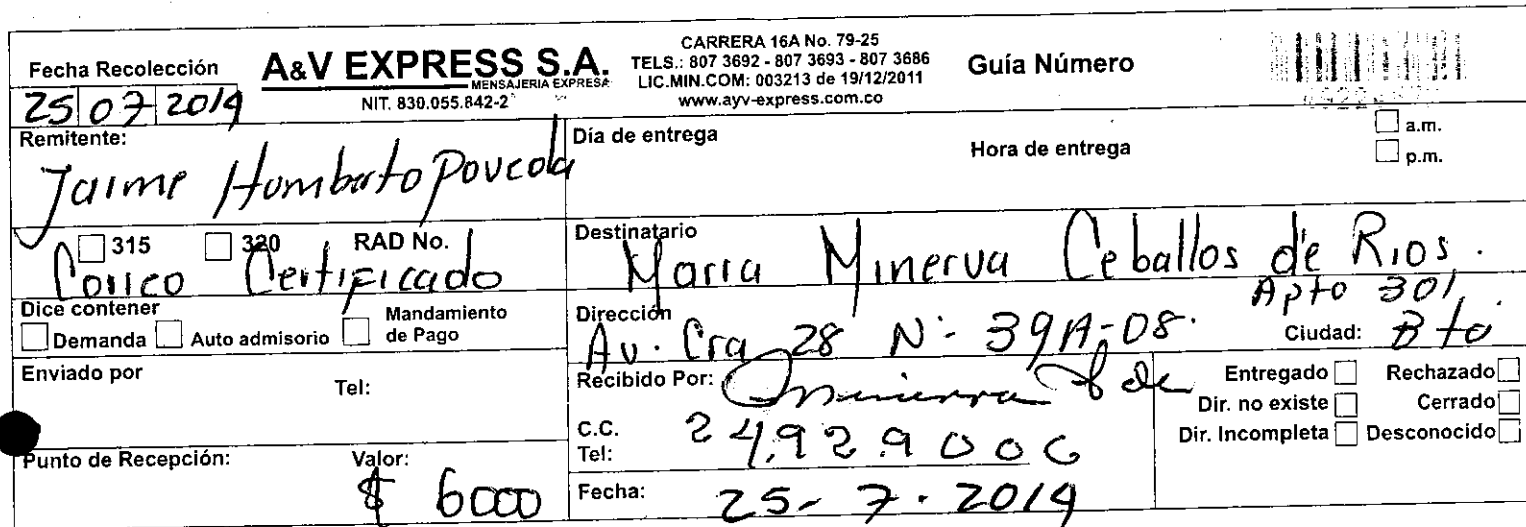 Fecha Recolección
25 07 2014
A&V EXPRESS S.A.
MENSAJERIA EXPRESA
NIT. 830.055.842-2
CARRERA 16A No. 79-25
TELS.: 807 3692 - 807 3693 - 807 3686
LIC.MIN.COM: 003213 de 19/12/2011
www.ayv-express.com.co
Guía Número
Remitente:
Jaime Humberto Poveda
Día de entrega
Hora de entrega
a.m.
p.m.
315 320 RAD No.
Correo Certificado
Destinatario
Maria Minerva Ceballos de Rios.
Dice contener
Demanda Auto admisorio Mandamiento de Pago
Dirección
Av. Cra 28 Nº- 39A-08. Apto 301
Ciudad: Bta
Enviado por
Tel:
Recibido Por: Minerva de
C.C.
Tel:
24.929.000
Entregado Rechazado
Dir. no existe Cerrado
Dir. Incompleta Desconocido
Punto de Recepción:
Valor:
$ 6000
Fecha: 25-7-2014